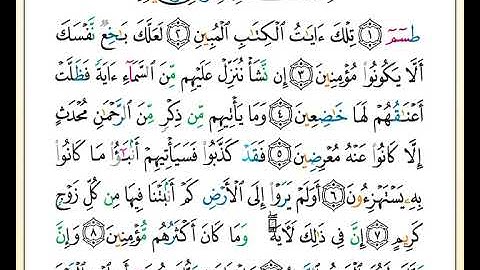 طسٓمٓ ١ تِلْكَ ءَايَٰتُ ٱلْكِتَٰبِ ٱلْمُبِينِ ٢ لَعَلَّكَ بَٰخِعٌ نَّفْسَكَ
أَلَّا يَكُونُوا۟ مُؤْمِنِينَ ٣ إِن نَّشَأْ نُنَزِّلْ عَلَيْهِم مِّنَ ٱلسَّمَآءِ ءَايَةً فَظَلَّتْ
أَعْنَٰقُهُمْ لَهَا خَٰضِعِينَ ٤ وَمَا يَأْتِيهِم مِّن ذِكْرٍ مِّنَ ٱلرَّحْمَٰنِ مُحْدَثٍ
إِلَّا كَانُوا۟ عَنْهُ مُعْرِضِينَ ٥ فَقَدْ كَذَّبُوا۟ فَسَيَأْتِيهِمْ أَنۢبَٰٓؤُا۟ مَا كَانُوا۟
بِهِۦ يَسْتَهْزِءُونَ ٦ أَوَلَمْ يَرَوْا۟ إِلَى ٱلْأَرْضِ كَمْ أَنۢبَتْنَا فِيهَا مِن كُلِّ زَوْجٍ
كَرِيمٍ ٧ إِنَّ فِى ذَٰلِكَ لَءَايَةً وَمَا كَانَ أَكْثَرُهُم مُّؤْمِنِينَ ٨ وَإِنَّ